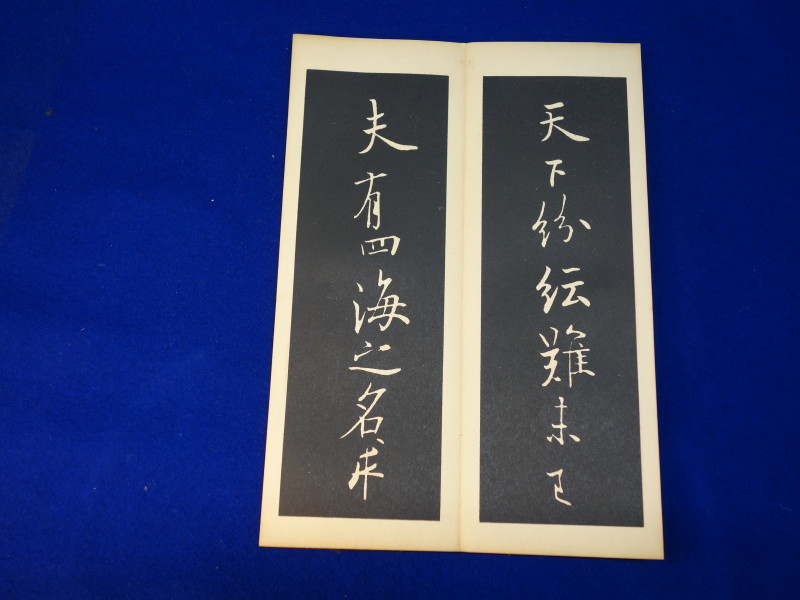 天下紛紜難未已
夫有四海之名求